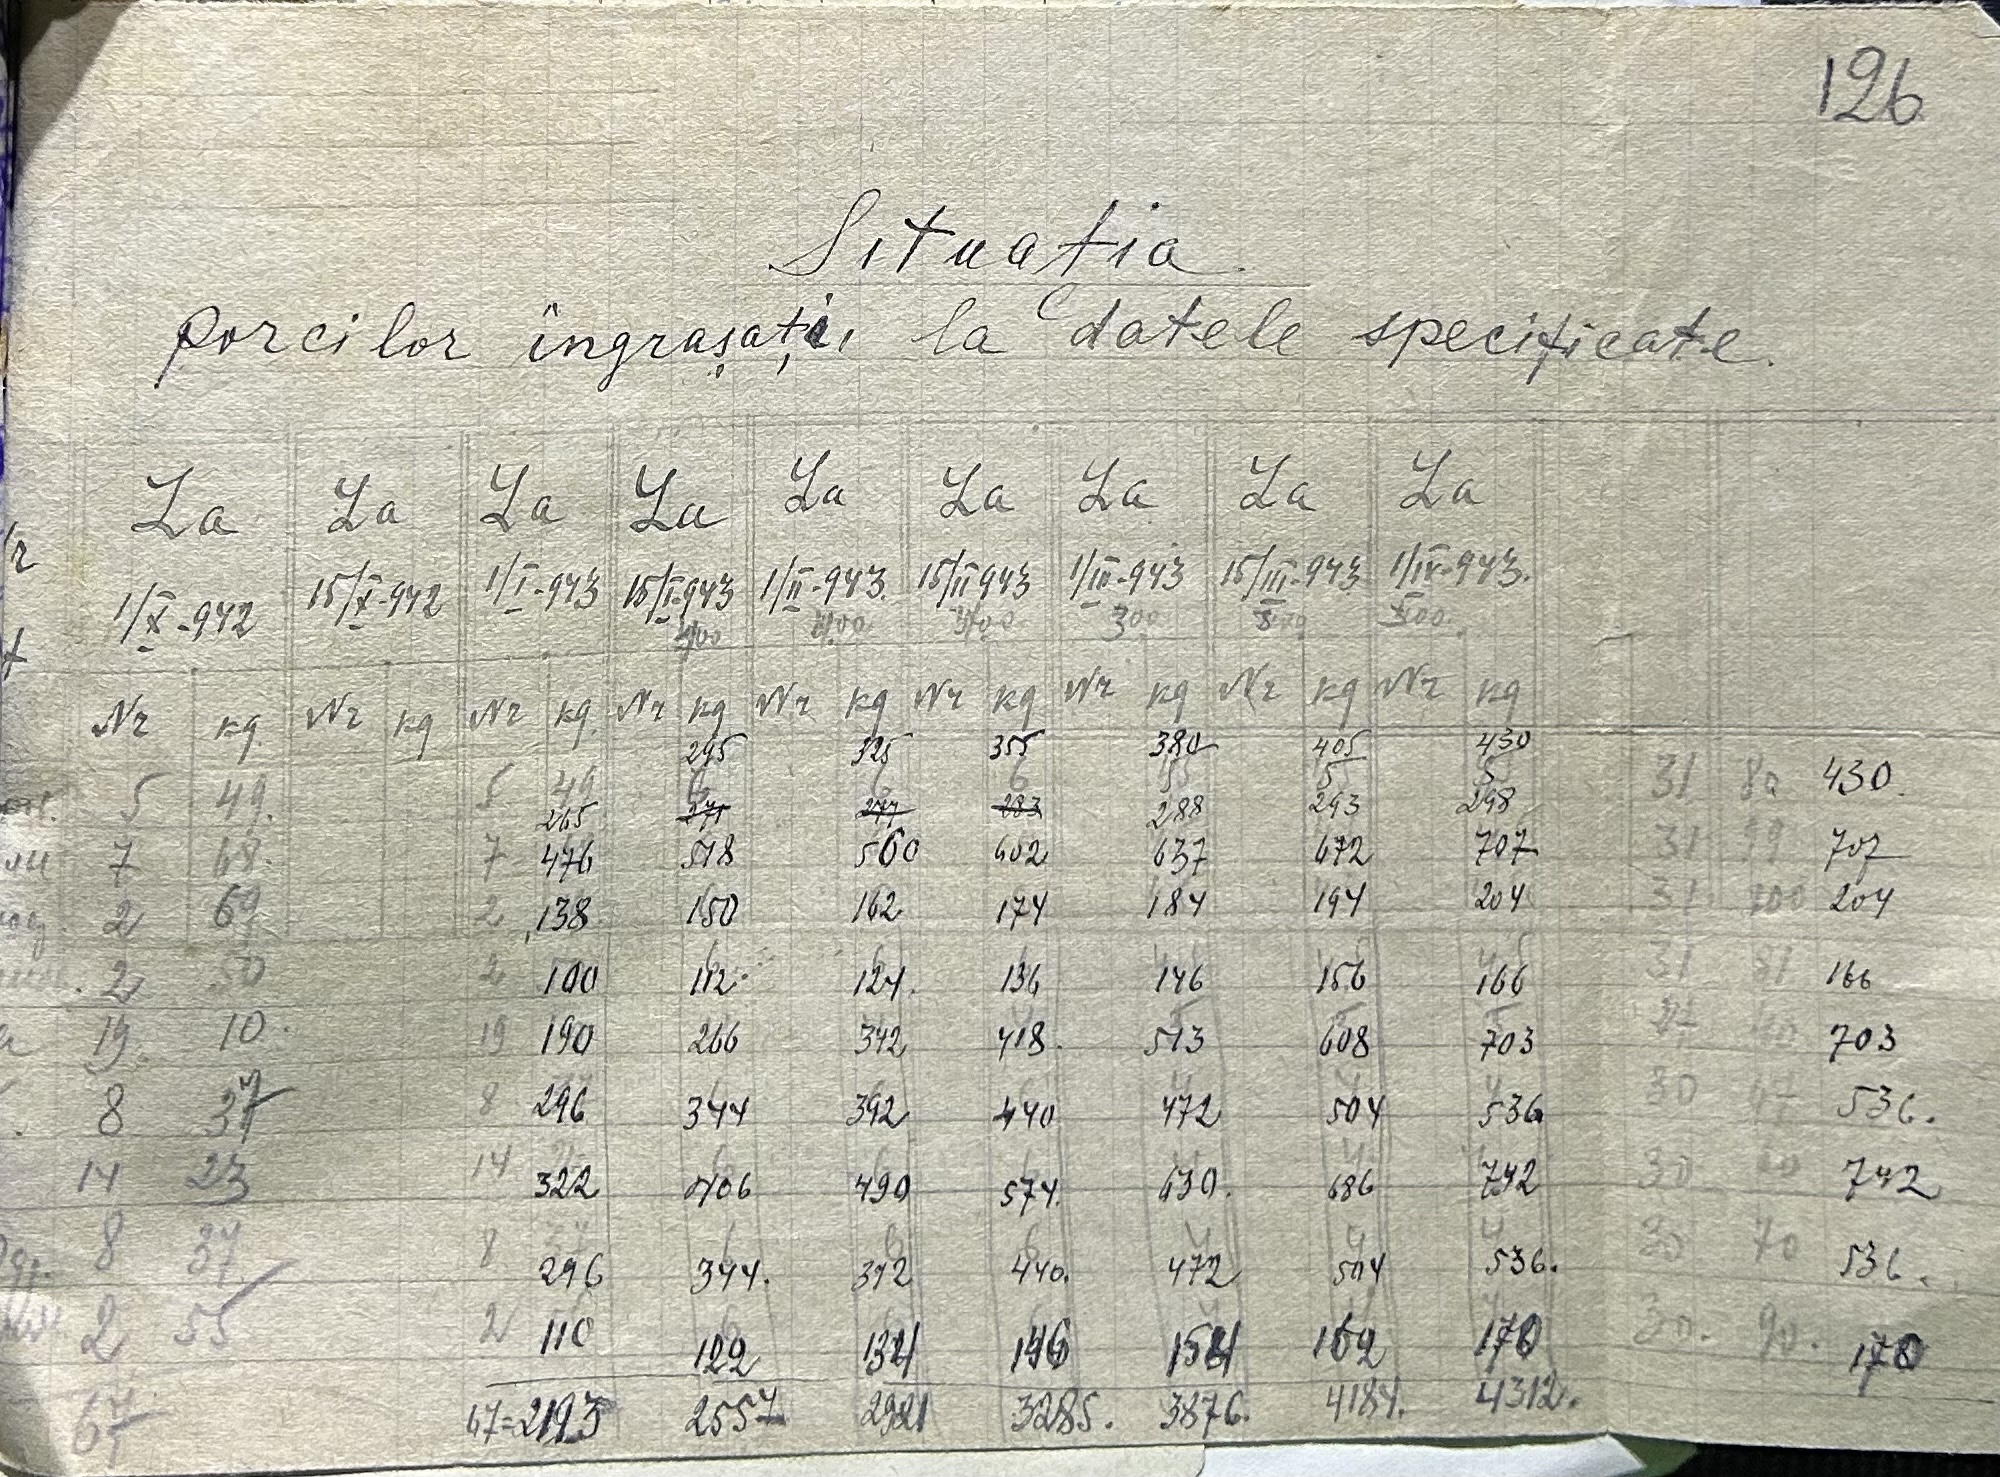 126
Situatia
porcilor îngrașați, la datele specificate.
La La La La La La La La La
1/X-942 15/X-942 1/I-943 15/I-943 1/II-943. 15/II 943 1/III-943 15/III-943 1/IV-943.
300
Nr kg. Nr kg Nr kg. Nr kg Nr kg Nr kg Nr kg Nr kg Nr kg
295 325 355 380 405 430
5 49. 5 49 6 6 6 5 5 5 31 80 430.
265 271 277 283 288 293 298
7 68. 7 476 518 560 602 637 672 707 31 707
2 69 2 138 150 162 174 184 194 204 31 100 204
2 50 2 100 112. 124. 136 146 156 166 31 81 166
19. 10. 19 190 266 342 418. 513 608 703 703
8 37 8 296 344 392 440 472 504 536 30 47 536.
14 23 14 322 406 490 574. 630. 686 742 30 742
8 37 8 37 296 344. 392 440. 472 504 536. 70 536.
2 55 2 110 122 134 146 154 162 170 30. 90. 170
67 67=2193 2557 2921 3285. 3876. 4184. 4312.